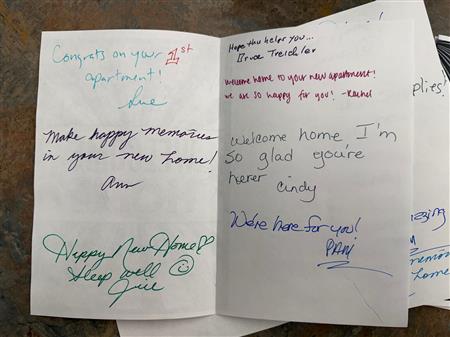 Congrats on your 1st
apartment!
Sue
Make happy memories
in your new home!
Ann
Happy New Home
Sleep well
Hope this helps you...
Bruce Treichler
Welcome home to your new apartment!
we are so happy for you! -Rachel
Welcome home I'm
so glad you're
herer
cindy
We're here for you!
PAM
plies!
home